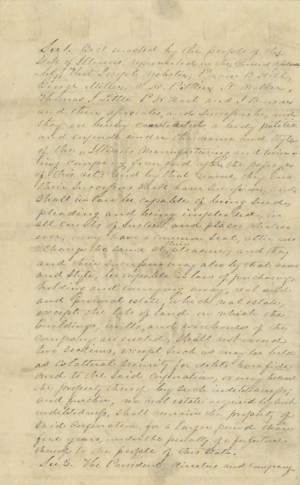 Sec 1. Be it enacted by the people of the
State of Illinois, represented in the General Assem
bly, That Joseph Webster,
George Miller,
Thomas J.
and their associates, and successors, and
they are hereby constituted a body politic
and corporate under the name and style
of the Illinois Manufacturing and
ing Company, from and after the passage
of this act: And by that name, they and
their successors shall have succession, and
shall in law be capable of being sued,
pleading and being impleaded, in
all courts of justice and places whatso
ever; may have a common seal, alter and
change the same at pleasure, and they
and their successors may also by that name
and style, be capable in law of purchasing
holding and conveying away real and
and personal estate, which real estate
except the lots of land, on which the
buildings, mills, and warehouses of the
company are erected, shall not exceed
two sections, except such as may be held
as collateral security for debts
to the said corporation, or may have
the property thereof by such indebtedness;
and further, no real estate acquired by such
indebtedness, shall remain the property of
said corporation, for a longer period than
five years, under the penalty of a forfeiture
thereof to the people of this State.
Sec 2. The President, Directors and Company